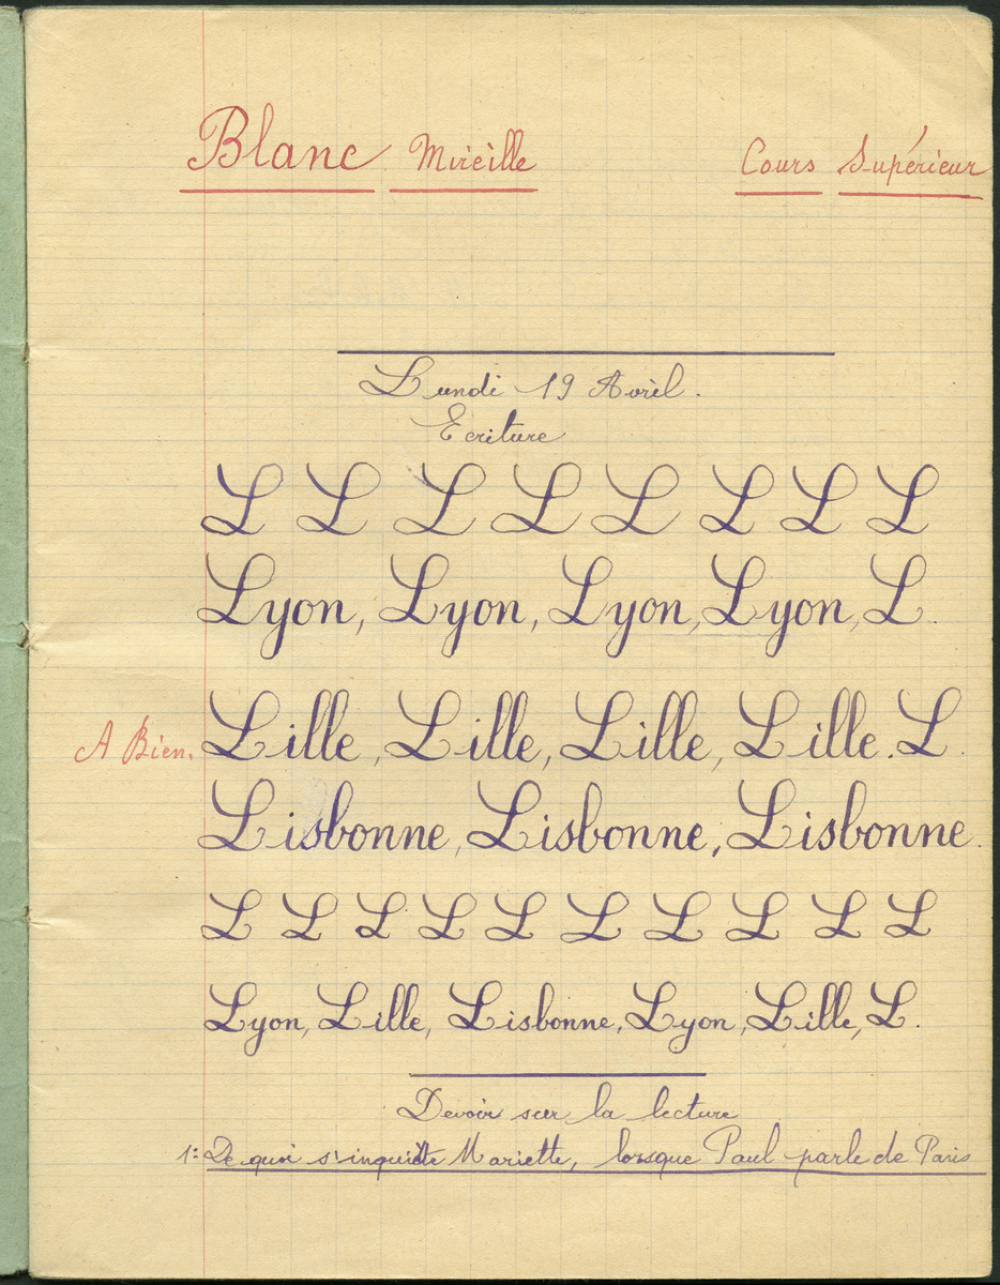 Blanc Mireille Cours Supérieur
Lundi 19 Avril.
Ecriture
L L L L L L L L
Lyon, Lyon, Lyon, Lyon, L.
A Bien. Lille, Lille, Lille, Lille. L.
Lisbonne, Lisbonne, Lisbonne.
L L L L L L L L L L
Lyon, Lille, Lisbonne, Lyon, Lille, L.
Devoir sur la lecture
1: De quoi s'inquiète Mariette, lorsque Paul parle de Paris